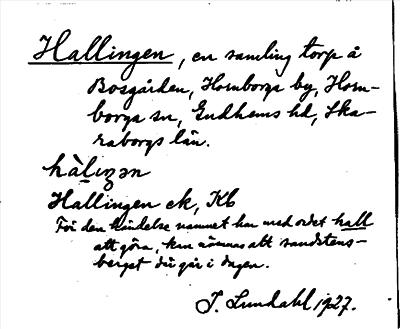 Hallingen, en samling torp å
Bosgården, Hornborga by, Horn-
borga sn, Gudhems hd, Ska-
raborgs län.
hàlıŋən
Hallingen ek, Kb
För den händelse namnet har med ordet hall
att göra, kan nämnas att sandstens-
berget där går i dagen.
J. Lundahl 1927.